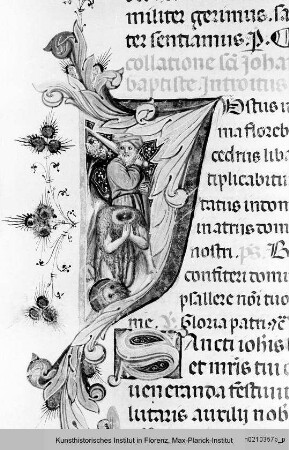 militer gerimus. sa
ter sentiamus. P. C
collatione sci Joha
baptiste Introitus
Ustus u
ma floreb
cedrus liba
tiplicabitu
tatus in dom
in atris domi
nostri. ps. B
confiteri domi
psallere noi tuo
me. Gloria patri
Sancti iohis
et mris tui q
ueneranda festiuit
lutaris auxilij nob
Kunsthistorisches Institut in Florenz, Max-Planck-Institut